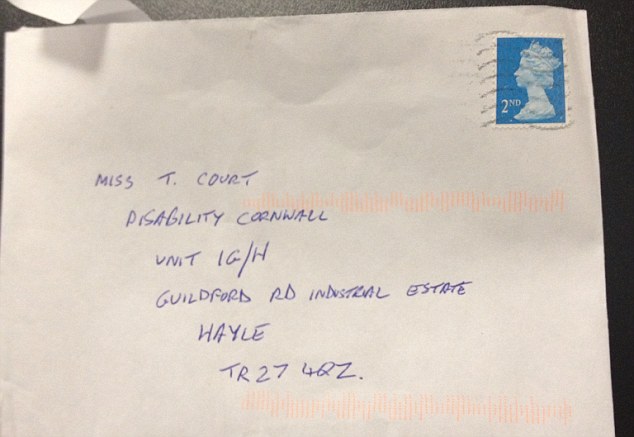 2ND
MISS T. COURT
DISABILITY CORNWALL
UNIT 1G/H
GUILDFORD RD INDUSTRIAL ESTATE
HAYLE
TR27 4QZ.